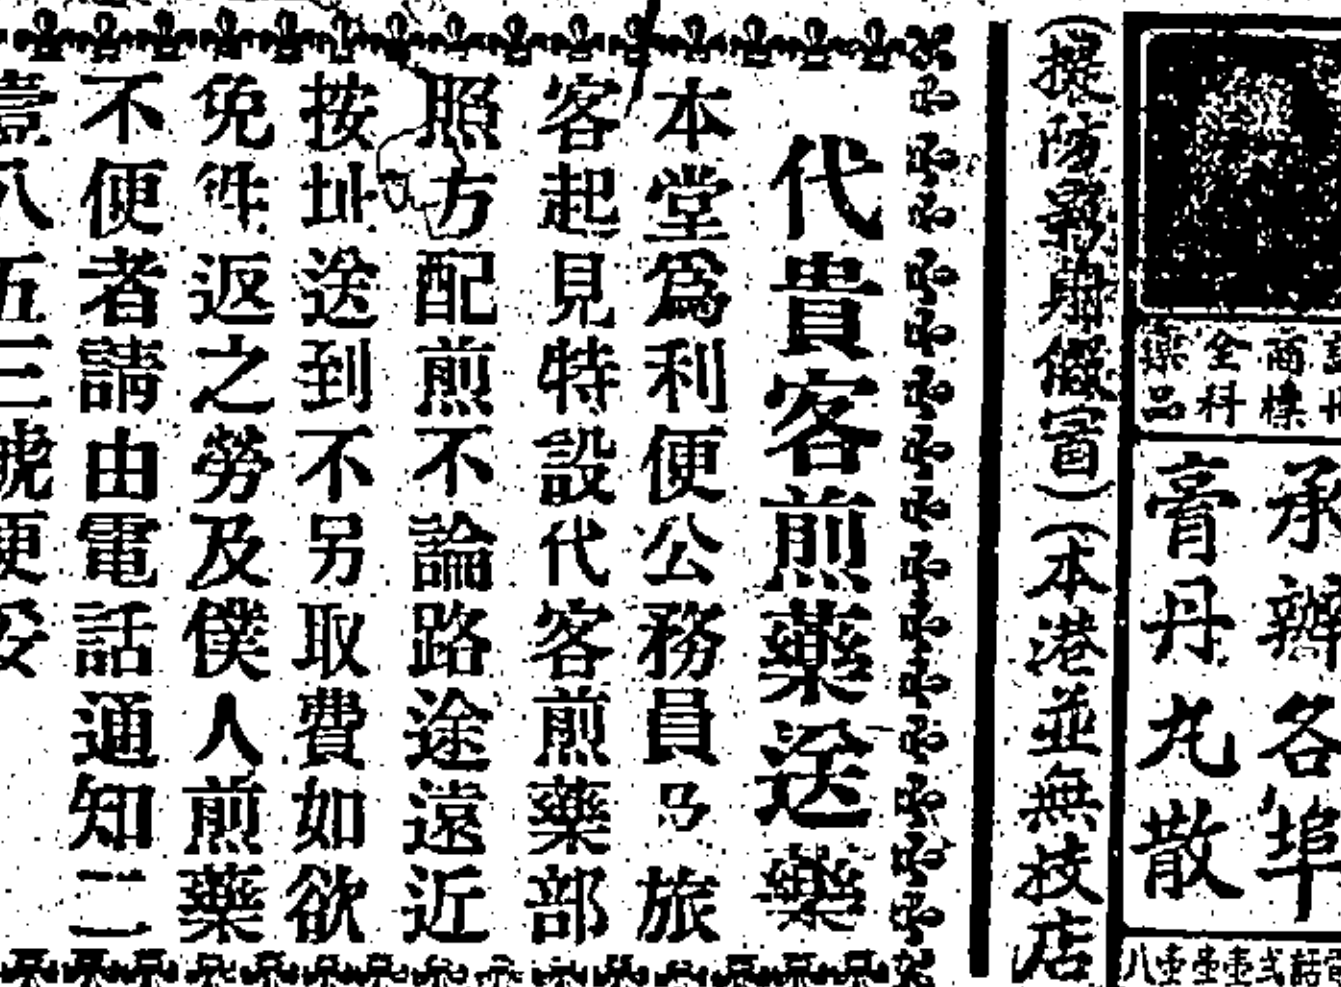 承辦各埠
膏丹丸散
商標
全科
藥品
(提防影射假冒)(本港並無技店
代貴客煎藥送藥
本堂爲利便公務員及旅
客起見特設代客煎藥部
照方配煎不論路途遠近
按址送到不另取費如欲
免往返之勞及僕人煎藥
不便者請由電話通知二
壹八五三號便妥